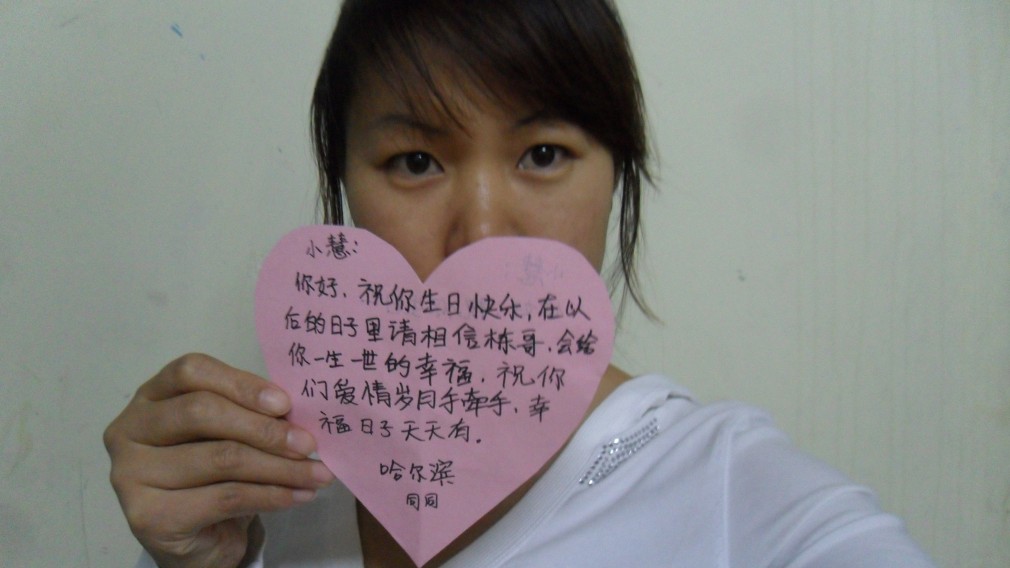 小慧：
你好，祝你生日快乐，在以
后的日子里请相信栋哥，会给
你一生一世的幸福，祝你
们爱情岁月手牵手，幸
福日子天天有。
哈尔滨
同同